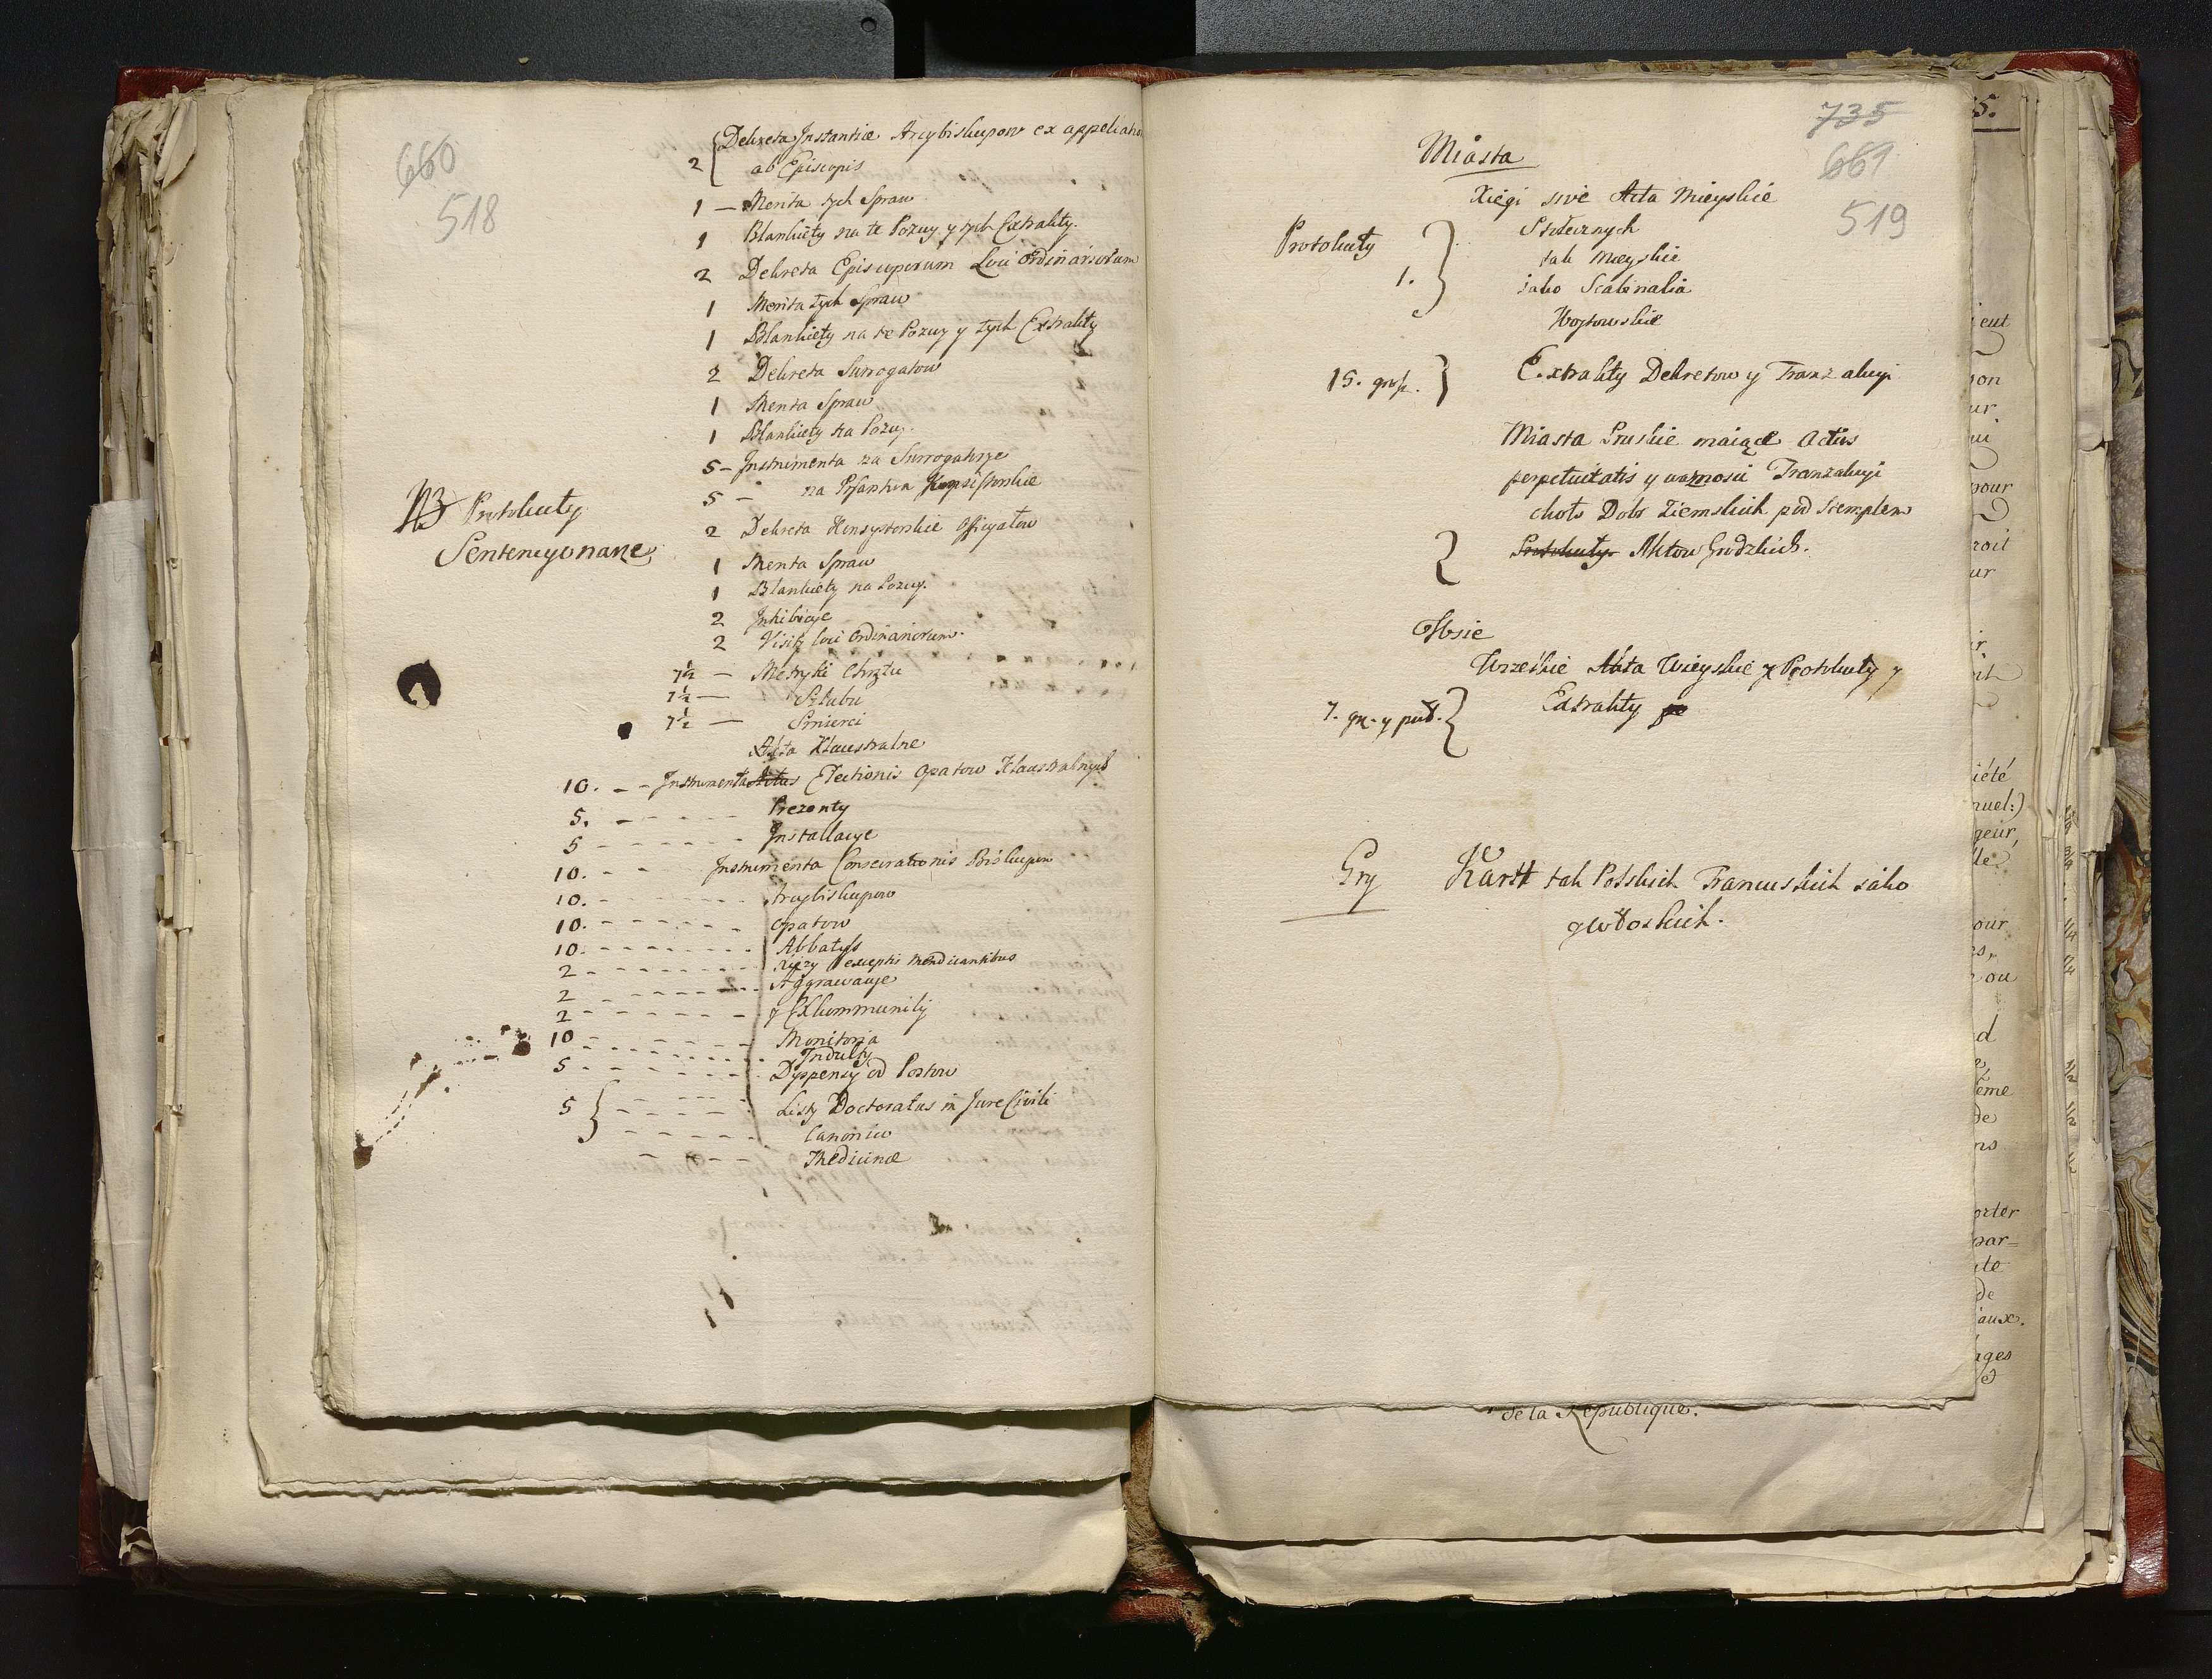 660
518
2 { Dekreta Instantiæ Arcybiskupow ex appellatio
ab Episcopis
1 — Merita tych Spraw
1 Blankiety na te Pozwy y tych Extrakty.
2 Dekreta Episcoporum Loci Ordinariorum
1 Merita tych Spraw
1 Blankiety na te Pozwy y tych Extrakty
2 Dekreta Surrogatow
1 Merita Spraw
1 Blankiety na Pozwy.
5 — Instrumenta na Surrogatorye
5 — na Pisarstwa
NB Protokuły
Sentencyonarze
2 Dekreta Konsystorskie Officyałow
1 Merita Spraw
1 Blankiety na Pozwy.
2 Inhibicye
2 Visity loci Ordinariorum.
7½ — Metryki Chrztu
7½ — Szlubu
7½ — Smierci
Akta Klaustralne
10. — Instrumenta Actus Electionis Opatow Klaustralnych
5. Prezenty
5 Installacye
10. Instrumenta Consecrationis Biskupow
10. Arcybiskupow
10. Opatow
10. Abbatyss
2 Xięży exceptis Mendicantibus
2 Aggrawacye
2 y Exkommuniki
10 Monitoria
Indulty
5 Dyspensy od Postow
5 } Listy Doctoratus in Jure Civili
Canonico
Medicinæ
735
661
519
Miasta
Xięgi sive Acta Mieyskie
Protokuły
1. } Stołecznych
tak Mieyskie
iako Scabinalia
Woytowskie
15. grosz. } Extrakty Dekretow y Tranzakcyi
Miasta Pruskie maiące Actus
perpetuitatis y waznosci Tranzakcyi
około Dobr Ziemskich pod Stemplem
{ Protokuły Aktow Grodzkich.
Wsie
Wszeskie Akta Wieyskie y Protokuły y
7. gr. y puł. { Extrakty
Gry Kart tak Polskich Francuskich iako
y Włoskich.
de la Republique.